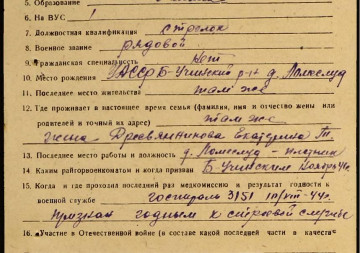 5. Образование
6. На ВУС
7. Должностная квалификация стрелок
8. Военное звание рядовой
9. Гражданская специальность нет
10. Место рождения УАССР Б-Учинский р-н д.
11. Последнее место жительства там же
12. Где проживает в настоящее время семья (фамилия, имя и отчество жены или
родителей и точный их адрес) там же
жена Древянникова Екатерина Т.
13. Последнее место работы и должность д. плотник
14. Каким райгорвоенкоматом и когда призван Б-Учинским
15. Когда и где проходил последний раз медкомиссию и результат годности к
военной службе госпиталь 3151 44г.
признан годным к строевой службе
16. Участие в Отечественной войне (в составе какой последней части в качестве